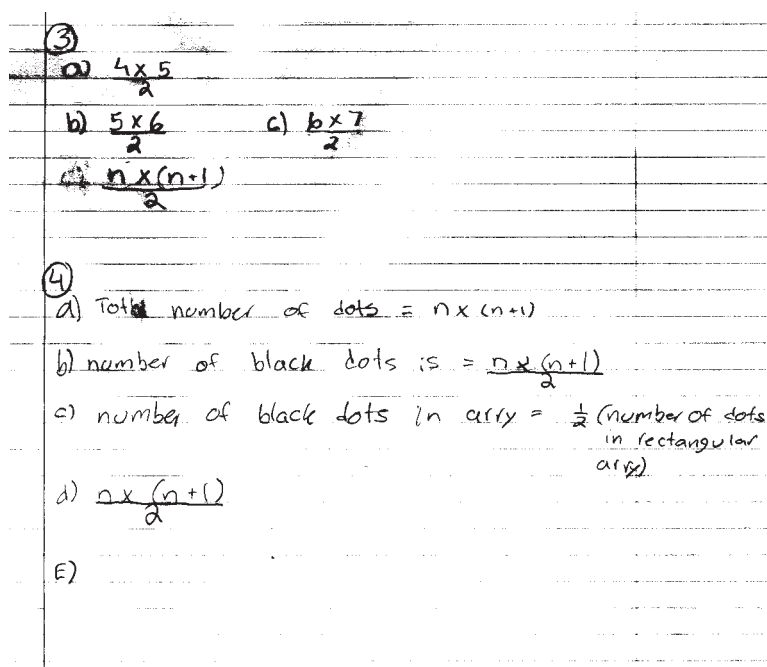 ③
a) 4 x 5
2
b) 5 x 6
2
c) 6 x 7
2
n x (n+1)
2
④
a) Total number of dots = n x (n+1)
b) number of black dots is = n x (n+1)
2
c) number of black dots in arry = 1/2 (number of dots
in rectangular
arry)
d) n x (n+1)
2
E)